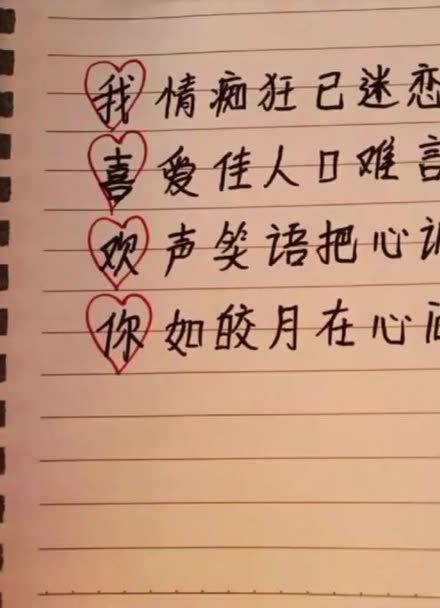 我情痴狂已迷恋
喜爱佳人口难言
欢声笑语把心
你如皎月在心